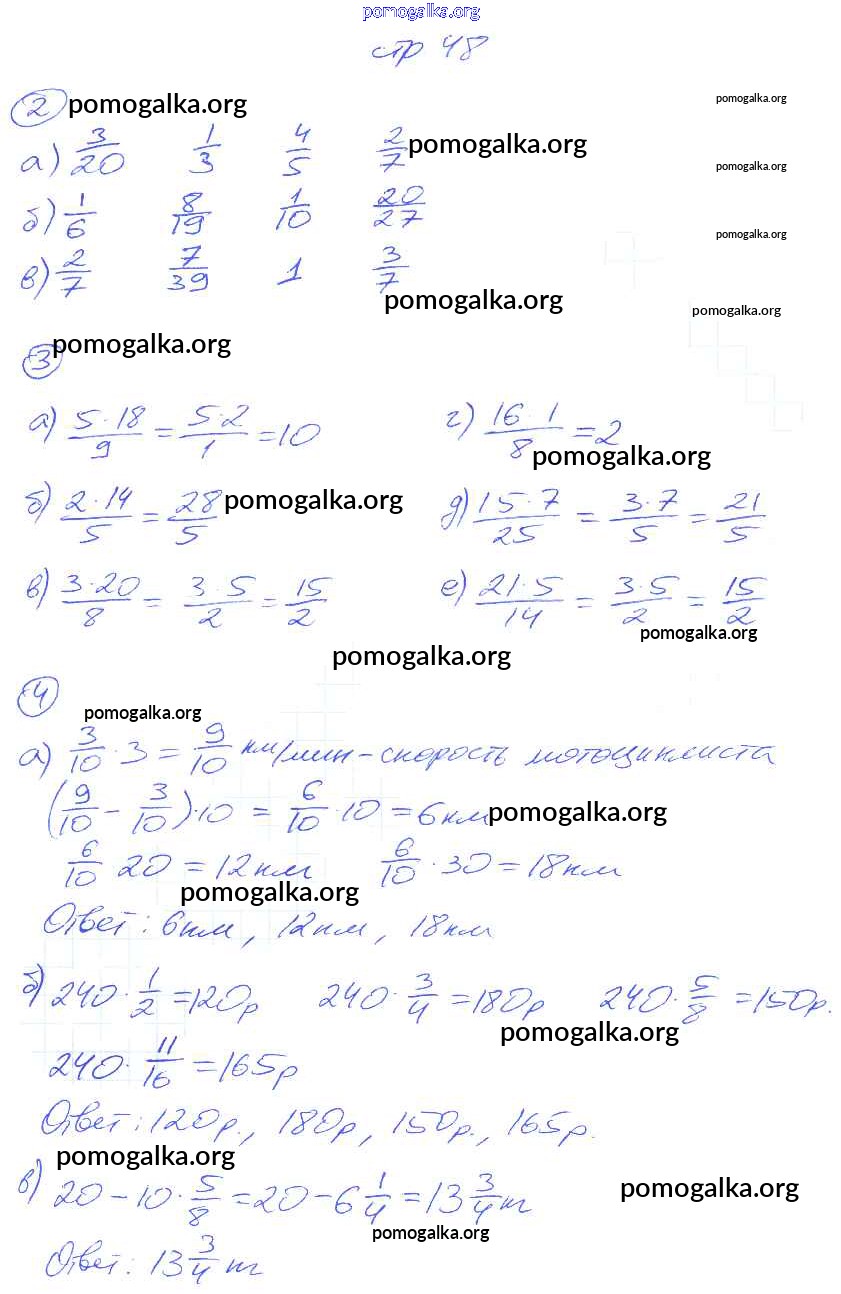 pomogalka.org
стр 48
2 pomogalka.org pomogalka.org
а) 3/20 1/3 4/5 2/7 pomogalka.org pomogalka.org
б) 1/6 8/19 1/10 20/27 pomogalka.org
в) 2/7 7/39 1 3/7
pomogalka.org pomogalka.org
3 pomogalka.org
а) 5·18/9 = 5·2/1 = 10 г) 16·1/8 = 2
pomogalka.org
б) 2·14/5 = 28/5 pomogalka.org д) 15·7/25 = 3·7/5 = 21/5
в) 3·20/8 = 3·5/2 = 15/2 е) 21·5/14 = 3·5/2 = 15/2
pomogalka.org
pomogalka.org
4
pomogalka.org
а) 3/10 · 3 = 9/10 км/мин - скорость мотоциклиста
(9/10 - 3/10)·10 = 6/10 · 10 = 6км pomogalka.org
6/10 20 = 12км 6/10 · 30 = 18км
pomogalka.org
Ответ: 6км, 12км, 18км
б) 240 · 1/2 = 120р 240 · 3/4 = 180р 240 · 5/8 = 150р.
pomogalka.org
240 · 11/16 = 165р
Ответ: 120р., 180р, 150р., 165р.
pomogalka.org
в) 20 - 10 · 5/8 = 20 - 6 1/4 = 13 3/4 т pomogalka.org
pomogalka.org
Ответ: 13 3/4 т